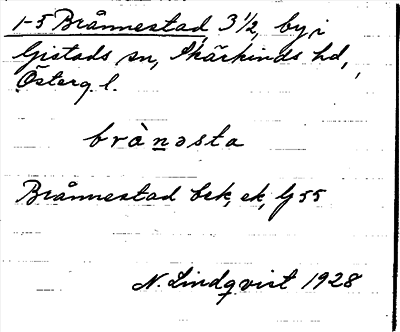 1-5 Brånnestad, 3 1/2, by i
Gistads sn, Skärkinds hd,
Österg. l.
brὰnəsta
Brånnestad bsk, ek, G 55
N. Lindqvist 1928